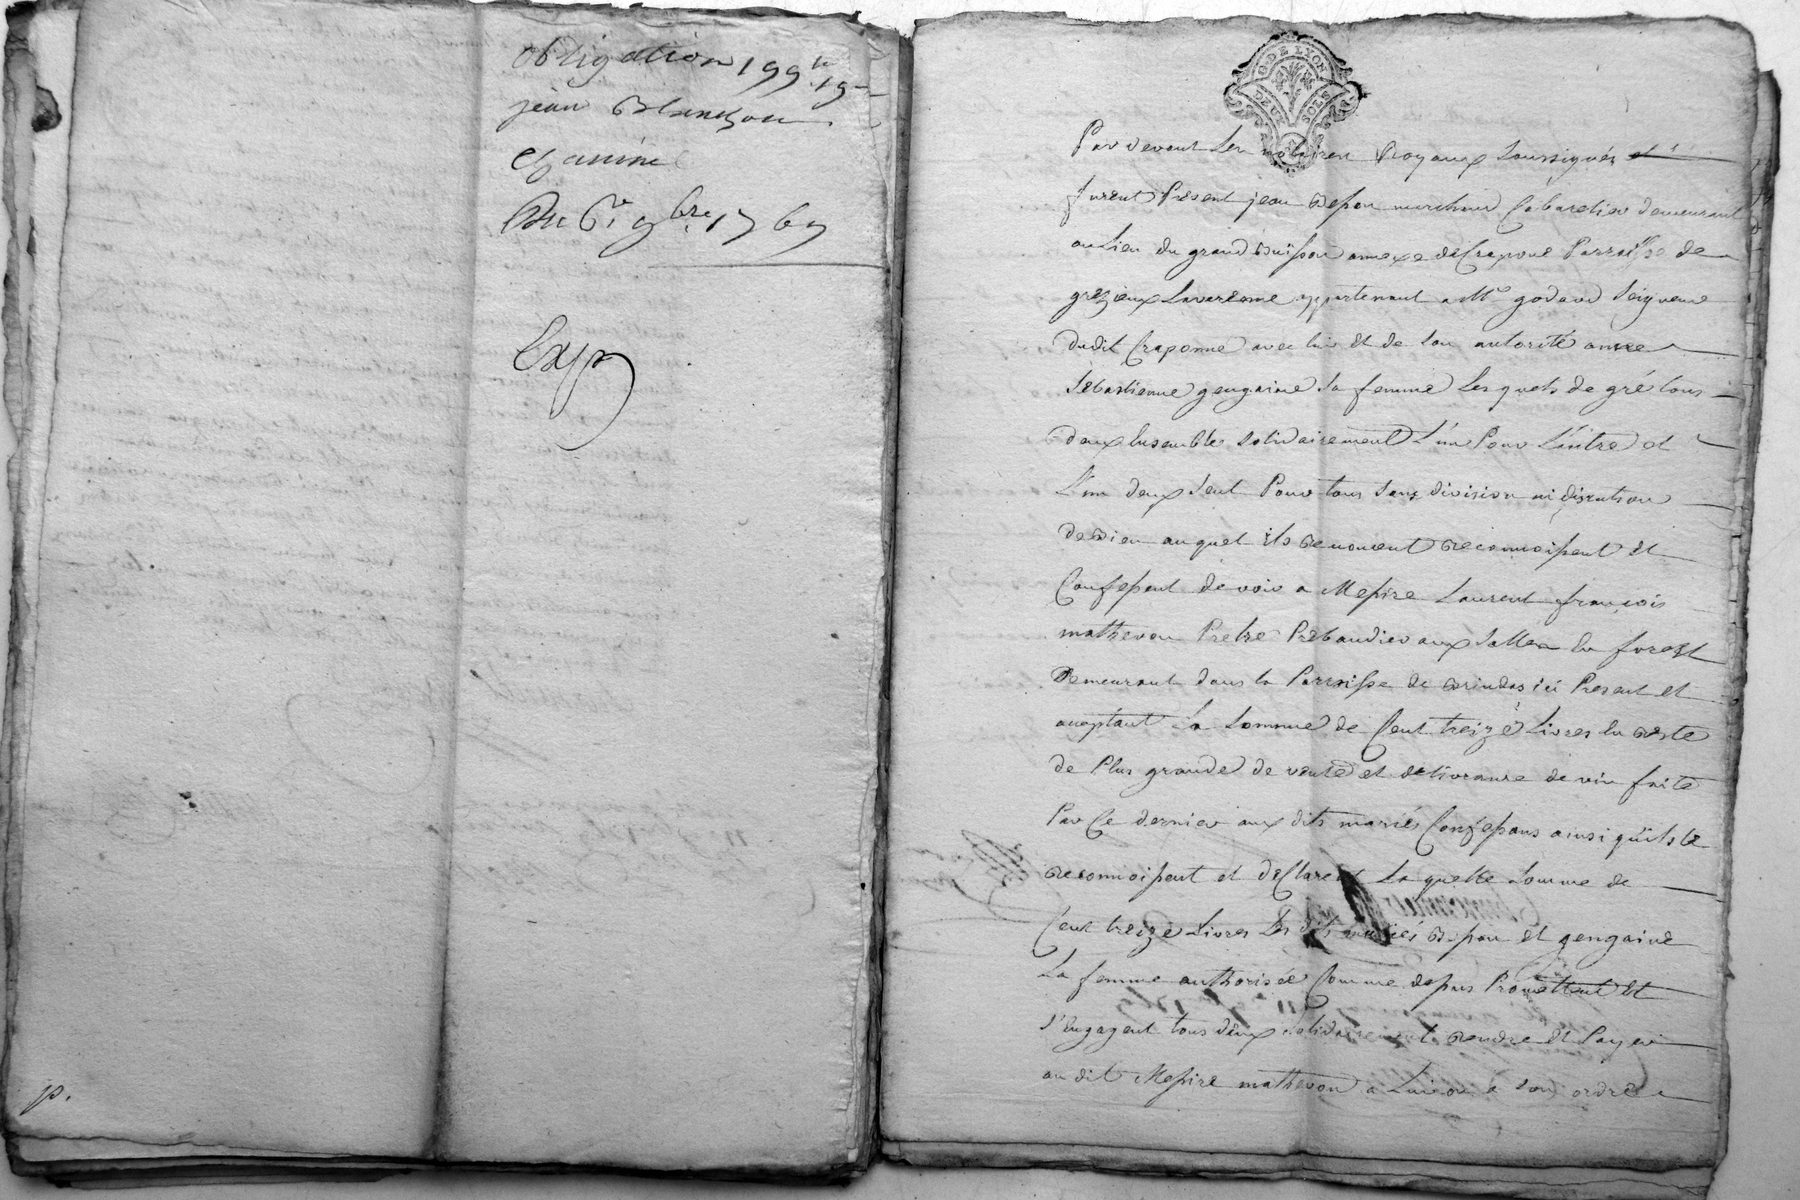 obligation 199 lt 19 s
jean Blanchon
Du 6e 9bre 1769
Exp
p.
G. DE LYON
DEUX SOLS
Pardevant Les notaires Royaux soussignés et
furent Present jean Besson marchand Cabaretier demeurant
au Lieu du grand Buisson annexe de Craponne Parroisse de
grezieux Lavarenne appartenant a Mr. godard seigneur
dudit Craponne avec lui Et de son autorité
sebastienne gengaine sa femme Lesquels de gré tous
deux Ensemble solidairement L'un Pour L'autre et
L'un deux seul Pour tous sans division ni discution
de Bien auquel ils Renoncent Reconnoissent Et
Confessent devoir a Messire Laurent françois
mathevon Pretre Prebandier aux salles En forest
Demeurant dans la Parroisse de Brindas ici Present et
acceptant La somme de Cent treize Livres En Reste
de Plus grande de vente et delivrance de vin faite
Par Ce dernier aux dits mariés Confessans ainsi qu'ils le
Reconnoissent et declarent La quelle somme de
Cent treize Livres Les dits mariés Besson Et gengaine
La femme authorisée Comme dessus Promettent Et
s'Engagent tous deux solidairement Rendre Et Payer
au dit Messire mathevon a Lui ou a son ordre